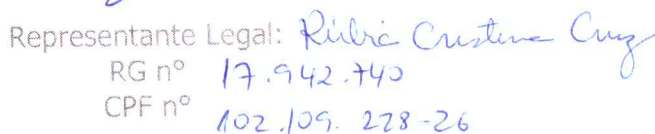 Representante Legal: Rúbia Cristina Cruz
RG nº 17.942.740
CPF nº 102.109.228-26